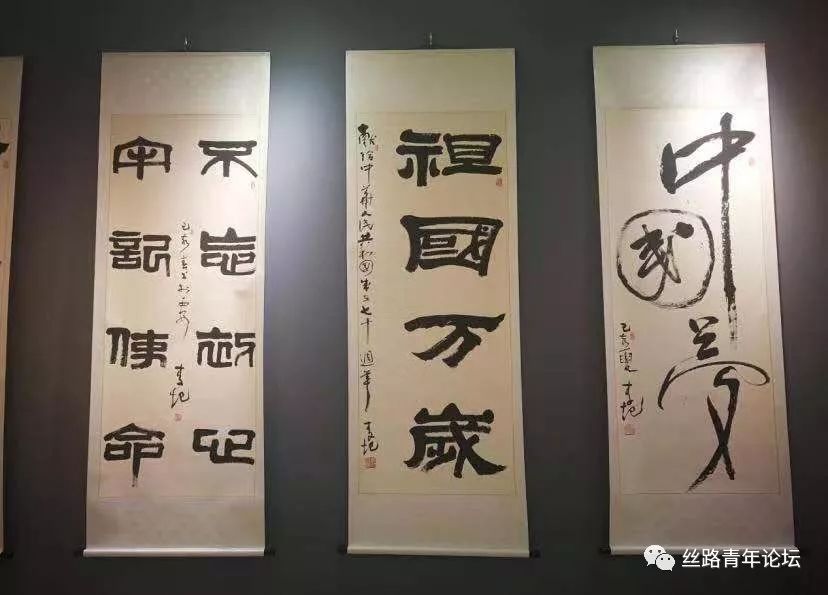 不忘初心
牢記使命
己亥
於西安
祖國万歲
獻給中華人民共和国成立七十週年
中國夢
己亥
丝路青年论坛